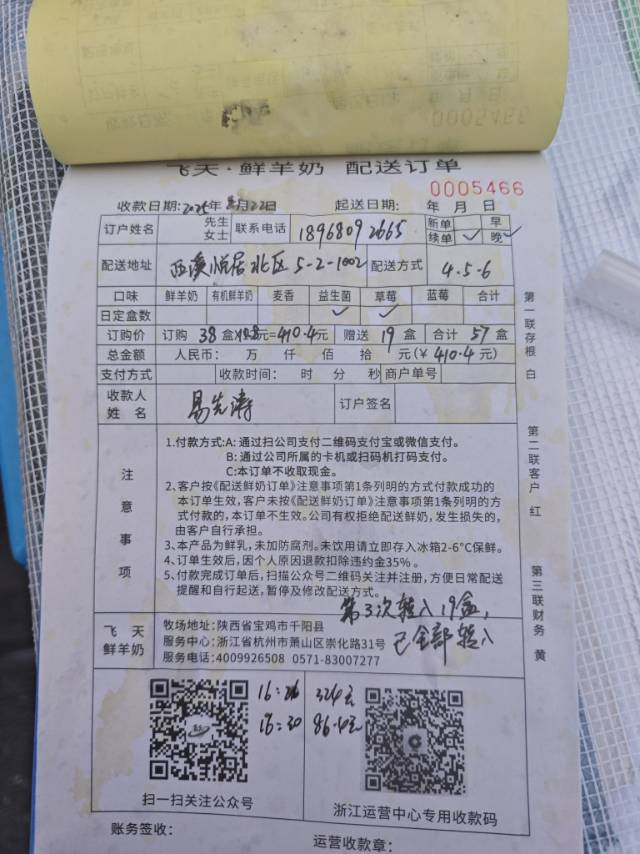 飞天·鲜羊奶 配送订单
0005466
收款日期:2025年8月22日 起送日期: 年 月 日
订户姓名 先生 女士 联系电话 18968092665 新单 续单✓ 早 晚✓
配送地址 西溪悦居北区5-2-1002 配送方式 4.5.6
口味 鲜羊奶 有机鲜羊奶 麦香 益生菌 草莓 蓝莓 合计
日定盒数 ✓ ✓
订购价 订购 38 盒×10.8元=410.4元 赠送 19 盒 合计 57 盒
总金额 人民币: 万 仟 佰 拾 元(¥ 410.4 元)
支付方式 收款时间: 时 分 秒 商户单号
收款人姓名 易先涛 订户签名
注意事项
1.付款方式:A:通过扫公司支付二维码支付宝或微信支付。
B:通过公司所属的卡机或扫码机打码支付。
C:本订单不收取现金。
2、客户按《配送鲜奶订单》注意事项第1条列明的方式付款成功的
本订单生效,客户未按《配送鲜奶订单》注意事项第1条列明的方
式付款的,本订单不生效。公司有权拒绝配送鲜奶,发生损失的,
由客户自行承担。
3、本产品为鲜乳,未加防腐剂。未饮用请立即存入冰箱2-6°C保鲜。
4、订单生效后,因个人原因退款扣除违约金35%。
5、付款完成订单后,扫描公众号二维码关注并注册,方便日常配送
提醒和自行起送,暂停及修改配送方式。
第3次转入19盒,
已全部转入
飞天鲜羊奶
牧场地址:陕西省宝鸡市千阳县
服务中心:浙江省杭州市萧山区崇化路31号
服务电话:4009926508 0571-83007277
16:26 324元
16:30 86.4元
扫一扫关注公众号
浙江运营中心专用收款码
账务签收:
运营收款章:
第一联存根 白
第二联客户 红
第三联财务 黄